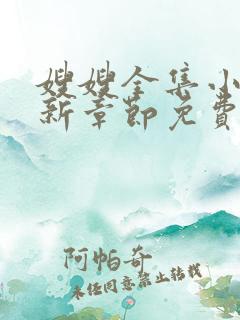 嫂嫂全集小
新章节免费
阿帕奇
未经同意禁止转载